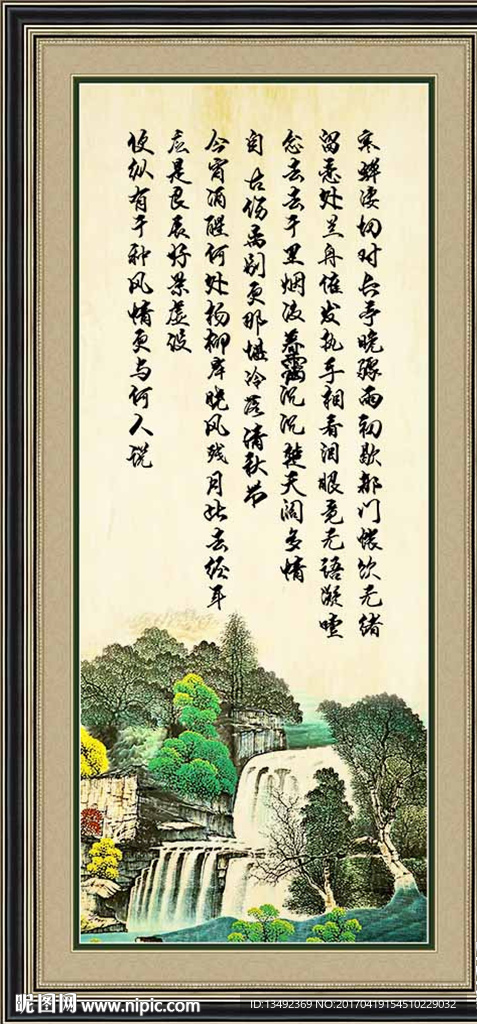 寒蝉凄切对长亭晚骤雨初歇都门帐饮无绪
留恋处兰舟催发执手相看泪眼竟无语凝噎
念去去千里烟波暮霭沉沉楚天阔多情
自古伤离别更那堪冷落清秋节
今宵酒醒何处杨柳岸晓风残月此去经年
应是良辰好景虚设
便纵有千种风情更与何人说
昵图网 www.nipic.com
ID:13492369 NO:20170419154510229032